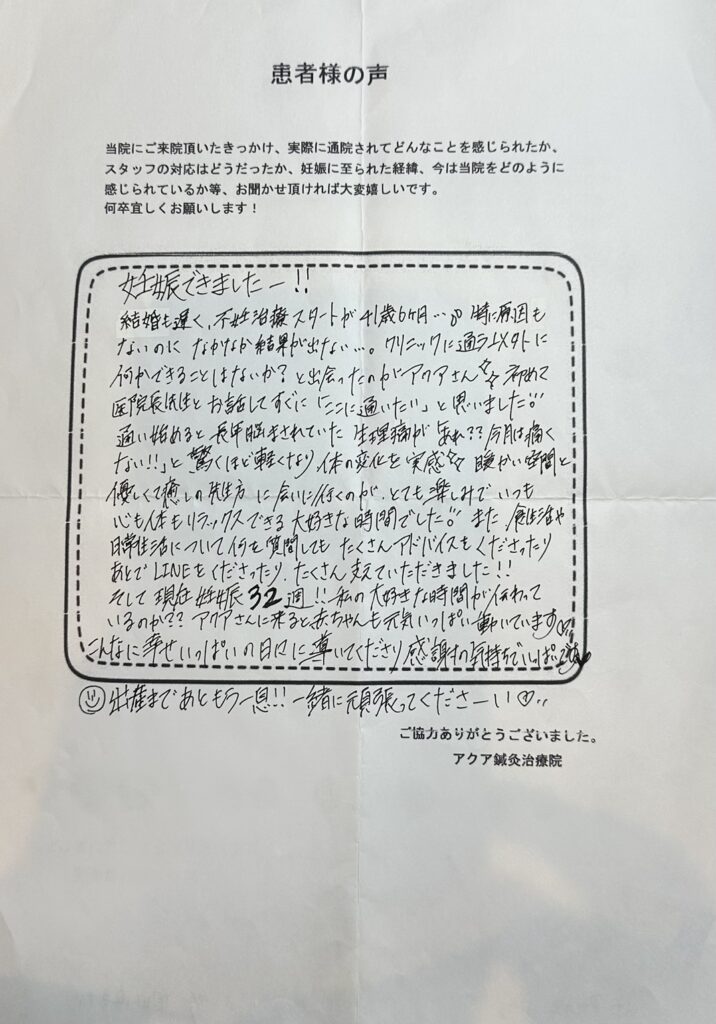 患者様の声
当院にご来院頂いたきっかけ、実際に通院されてどんなことを感じられたか、
スタッフの対応はどうだったか、妊娠に至られた経緯、今は当院をどのように
感じられているか等、お聞かせ頂ければ大変嬉しいです。
何卒宜しくお願いします！
妊娠できましたー!!
結婚も遅く、不妊治療スタートが41歳6ヶ月…。特に原因も
ないのに なかなか結果が出ない…。クリニックに通う以外に
何かできることはないか？と出会ったのがアクアさん 初めて
医院長先生と お話してすぐに「ここに通いたい」と思いました
通い始めると 長年悩まされていた 生理痛が「あれ？？今月は痛く
ない!!」と 驚くほど軽くなり 体の変化を実感 暖かい空間と
優しくて癒しの先生方 に会いに行くのが、とても楽しみで いつも
心も体もリラックスできる 大好きな時間でした また 食生活や
日常生活について何を質問しても たくさんアドバイスをくださったり
あとでLINEをくださったり、たくさん支えていただきました!!
そして 現在 妊娠32週!! 私の大好きな時間が伝わって
いるのか？？ アクアさんに来ると赤ちゃんも元気いっぱい動いています♡
こんなに幸せいっぱいの日々に 導いてくださり 感謝の気持ちでいっぱいです
出産まであともう一息!! 一緒に頑張ってくださーい♡
ご協力ありがとうございました。
アクア鍼灸治療院